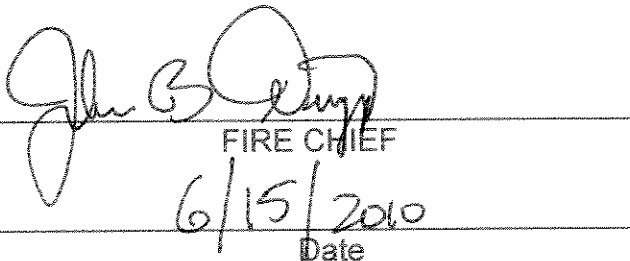 John B
FIRE CHIEF
6/15/2010
Date